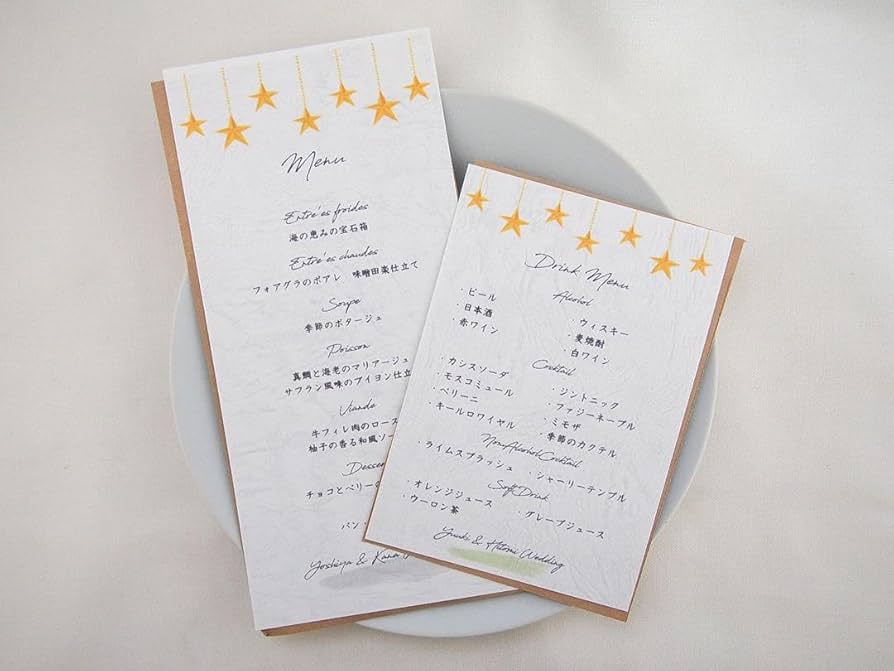 Menu
Entré'es froides
海の恵みの宝石箱
Entré'es chaudes
フォアグラのポアレ 味噌田楽仕立て
Soupe
季節のポタージュ
Poisson
真鯛と海老のマリアージュ
サフラン風味のブイヨン仕立
Viande
牛フィレ肉のロース
柚子の香る和風ソー
Desser
チョコとベリーの
パン
Yoshiya & Kana
Drink Menu
Alcohol
・ビール
・日本酒
・赤ワイン
・ウィスキー
・麦焼酎
・白ワイン
Cocktail
・カシスソーダ
・モスコミュール
・ベリーニ
・キールロワイヤル
・ジントニック
・ファジーネーブル
・ミモザ
・季節のカクテル
NonAlcohol Cocktail
・ライムスプラッシュ
・シャーリーテンプル
Soft Drink
・オレンジジュース
・ウーロン茶
・グレープジュース
Yuuki & Hitomi Wedding